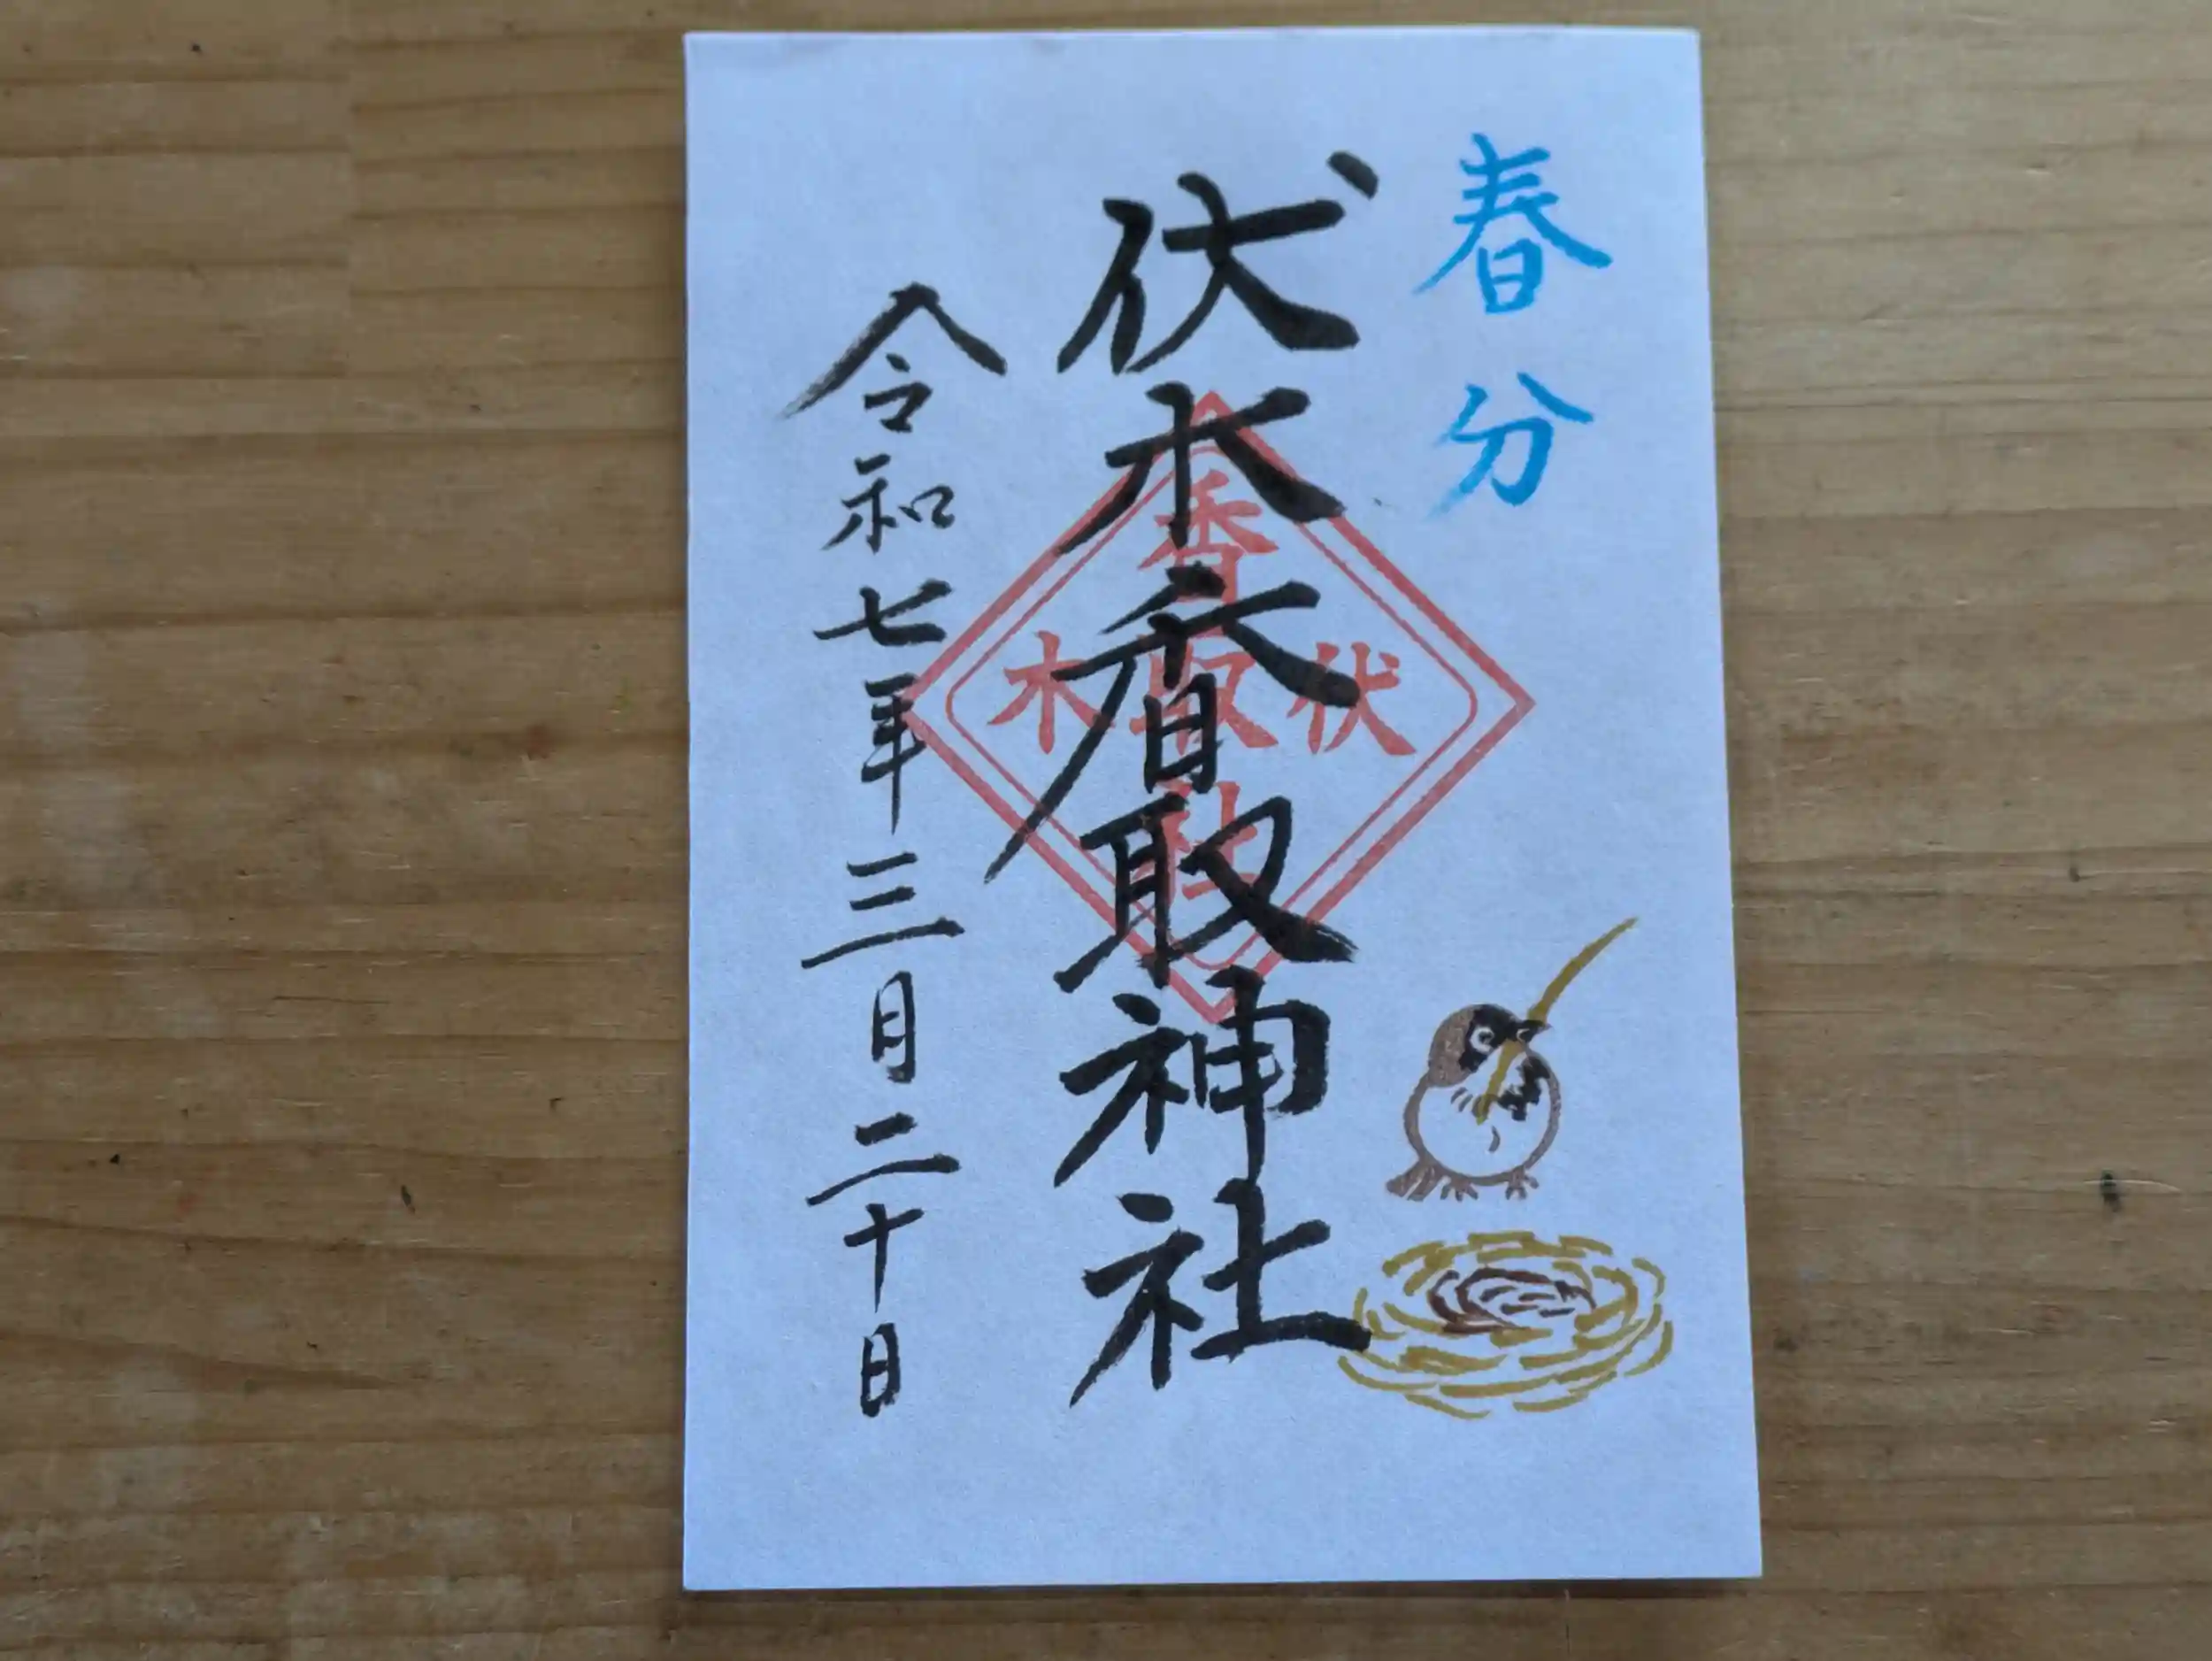 春分
伏木香取神社
香取社
伏木
令和七年三月二十日